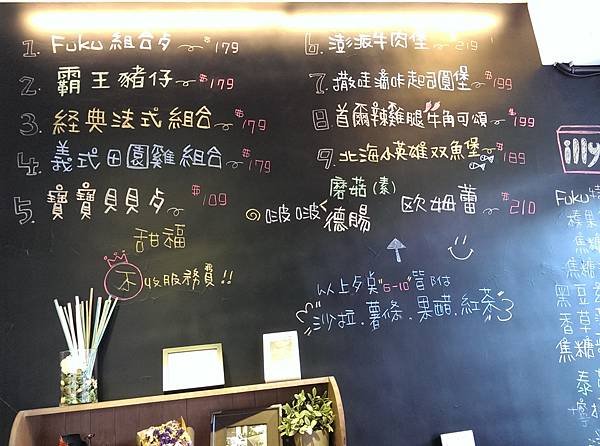 1. Fuku 組合歺 $179
2. 霸王豬仔 $179
3. 經典法式組合 $179
4. 義式田園雞組合 $179
5. 寶寶貝貝歺 $109
甜福
不收服務費!!
6. 澎派牛肉堡 $219
7. 撒哇滴咔起司圓堡 $199
8. 首爾辣雞腿牛角可頌 $199
9. 北海小英雄双魚堡 $189
磨菇(素)
啵啵德腸 歐姆蕾 $210
以上歺點"6-10"皆附
沙拉.薯條.果醋.紅茶
illy
Fuku特
榛果
焦糖
焦糖
黑豆
香草
焦糖
泰